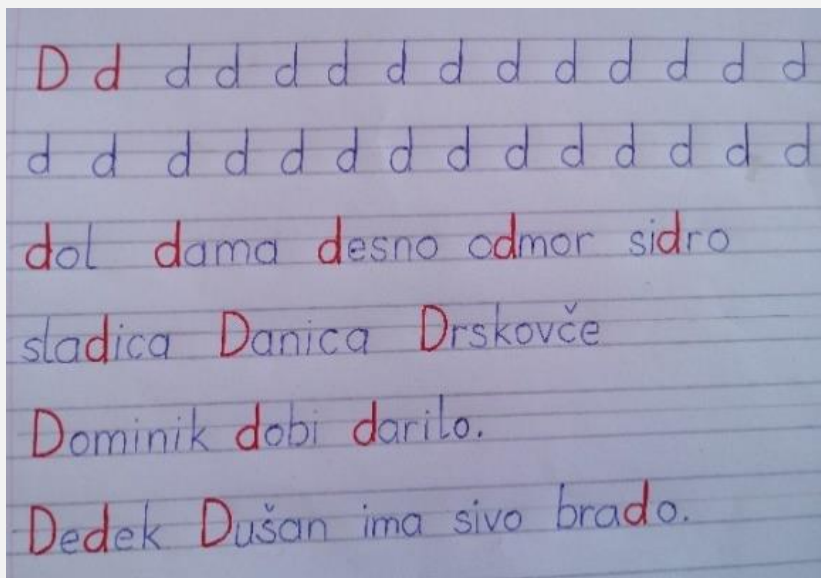 D d d d d d d d d d d d d d
d d d d d d d d d d d d d d
dol dama desno odmor sidro
sladica Danica Drskovče
Dominik dobi darilo.
Dedek Dušan ima sivo brado.